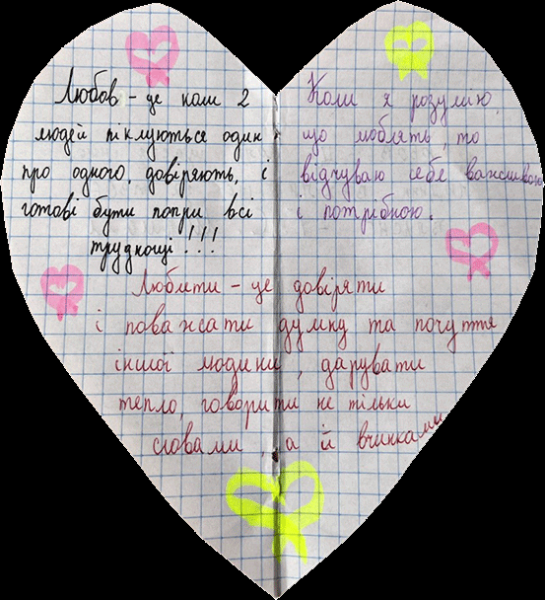 Любов - це коли 2
людей піклуються один
про одного, довіряють, і
готові бути попри всі
труднощі!!!
Коли я розумію,
що люблять, то
відчуваю себе важливою
і потрібною.
Любити - це довіряти
і поважати думку та почуття
іншої людини, дарувати
тепло, говорити не тільки
словами, а й вчинками